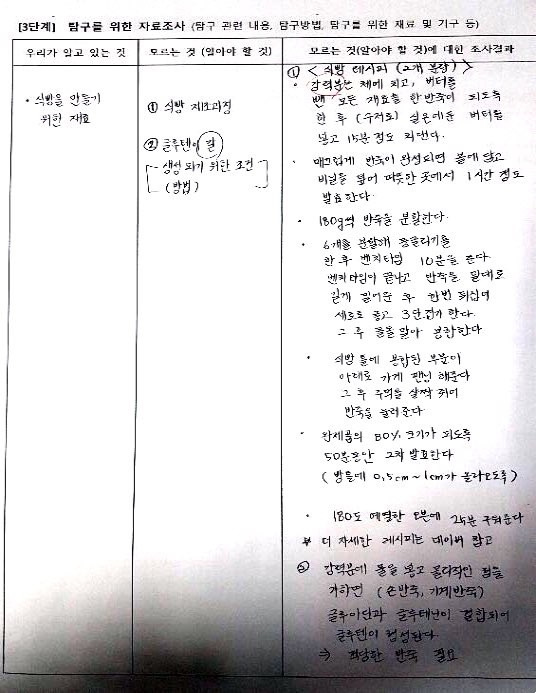 [3단계] 탐구를 위한 자료조사 (탐구 관련 내용, 탐구방법, 탐구를 위한 재료 및 기구 등)
우리가 알고 있는 것
모르는 것 (알아야 할 것)
모르는 것(알아야 할 것)에 대한 조사결과
· 식빵을 만들기
위한 재료
① 식빵 제조과정
② 글루텐이 잘
생성 되기 위한 조건
(방법)
① < 식빵 레시피 (2개 분량) >
· 강력분은 체에 치고, 버터를
뺀 모든 재료를 한 반죽이 되도록
한 후 (수저로) 실온에둔 버터를
넣고 15분 정도 치댄다.
· 매끄럽게 반죽이 완성되면 볼에 담고
비닐을 덮어 따뜻한 곳에서 1시간 정도
발효한다.
· 180g씩 반죽을 분할한다.
· 6개를 분할해 둥글리기를
한 후 벤치타임 10분을 준다.
벤치타임이 끝나고 반죽을 밀대로
길게 밀어준 후 한번 뒤집어
세로로 놓고 3단접기 한다.
그 후 돌돌 말아 봉합한다
· 식빵 틀에 봉합된 부분이
아래로 가게 팬닝 해준다
그 후 주먹을 살짝 쥐어
반죽을 눌러준다
· 완제품의 80% 크기가 되도록
50분동안 2차 발효한다
(빵틀에 0.5cm~1cm가 올라오도록)
· 180도 예열한 오븐에 25분 구워준다
* 더 자세한 레시피는 네이버 참고
② 강력분에 물을 넣고 물리적인 힘을
가하면 (손반죽, 기계반죽)
글루아딘과 글루테닌이 결합되어
글루텐이 형성된다
⇒ 적당한 반죽 필요